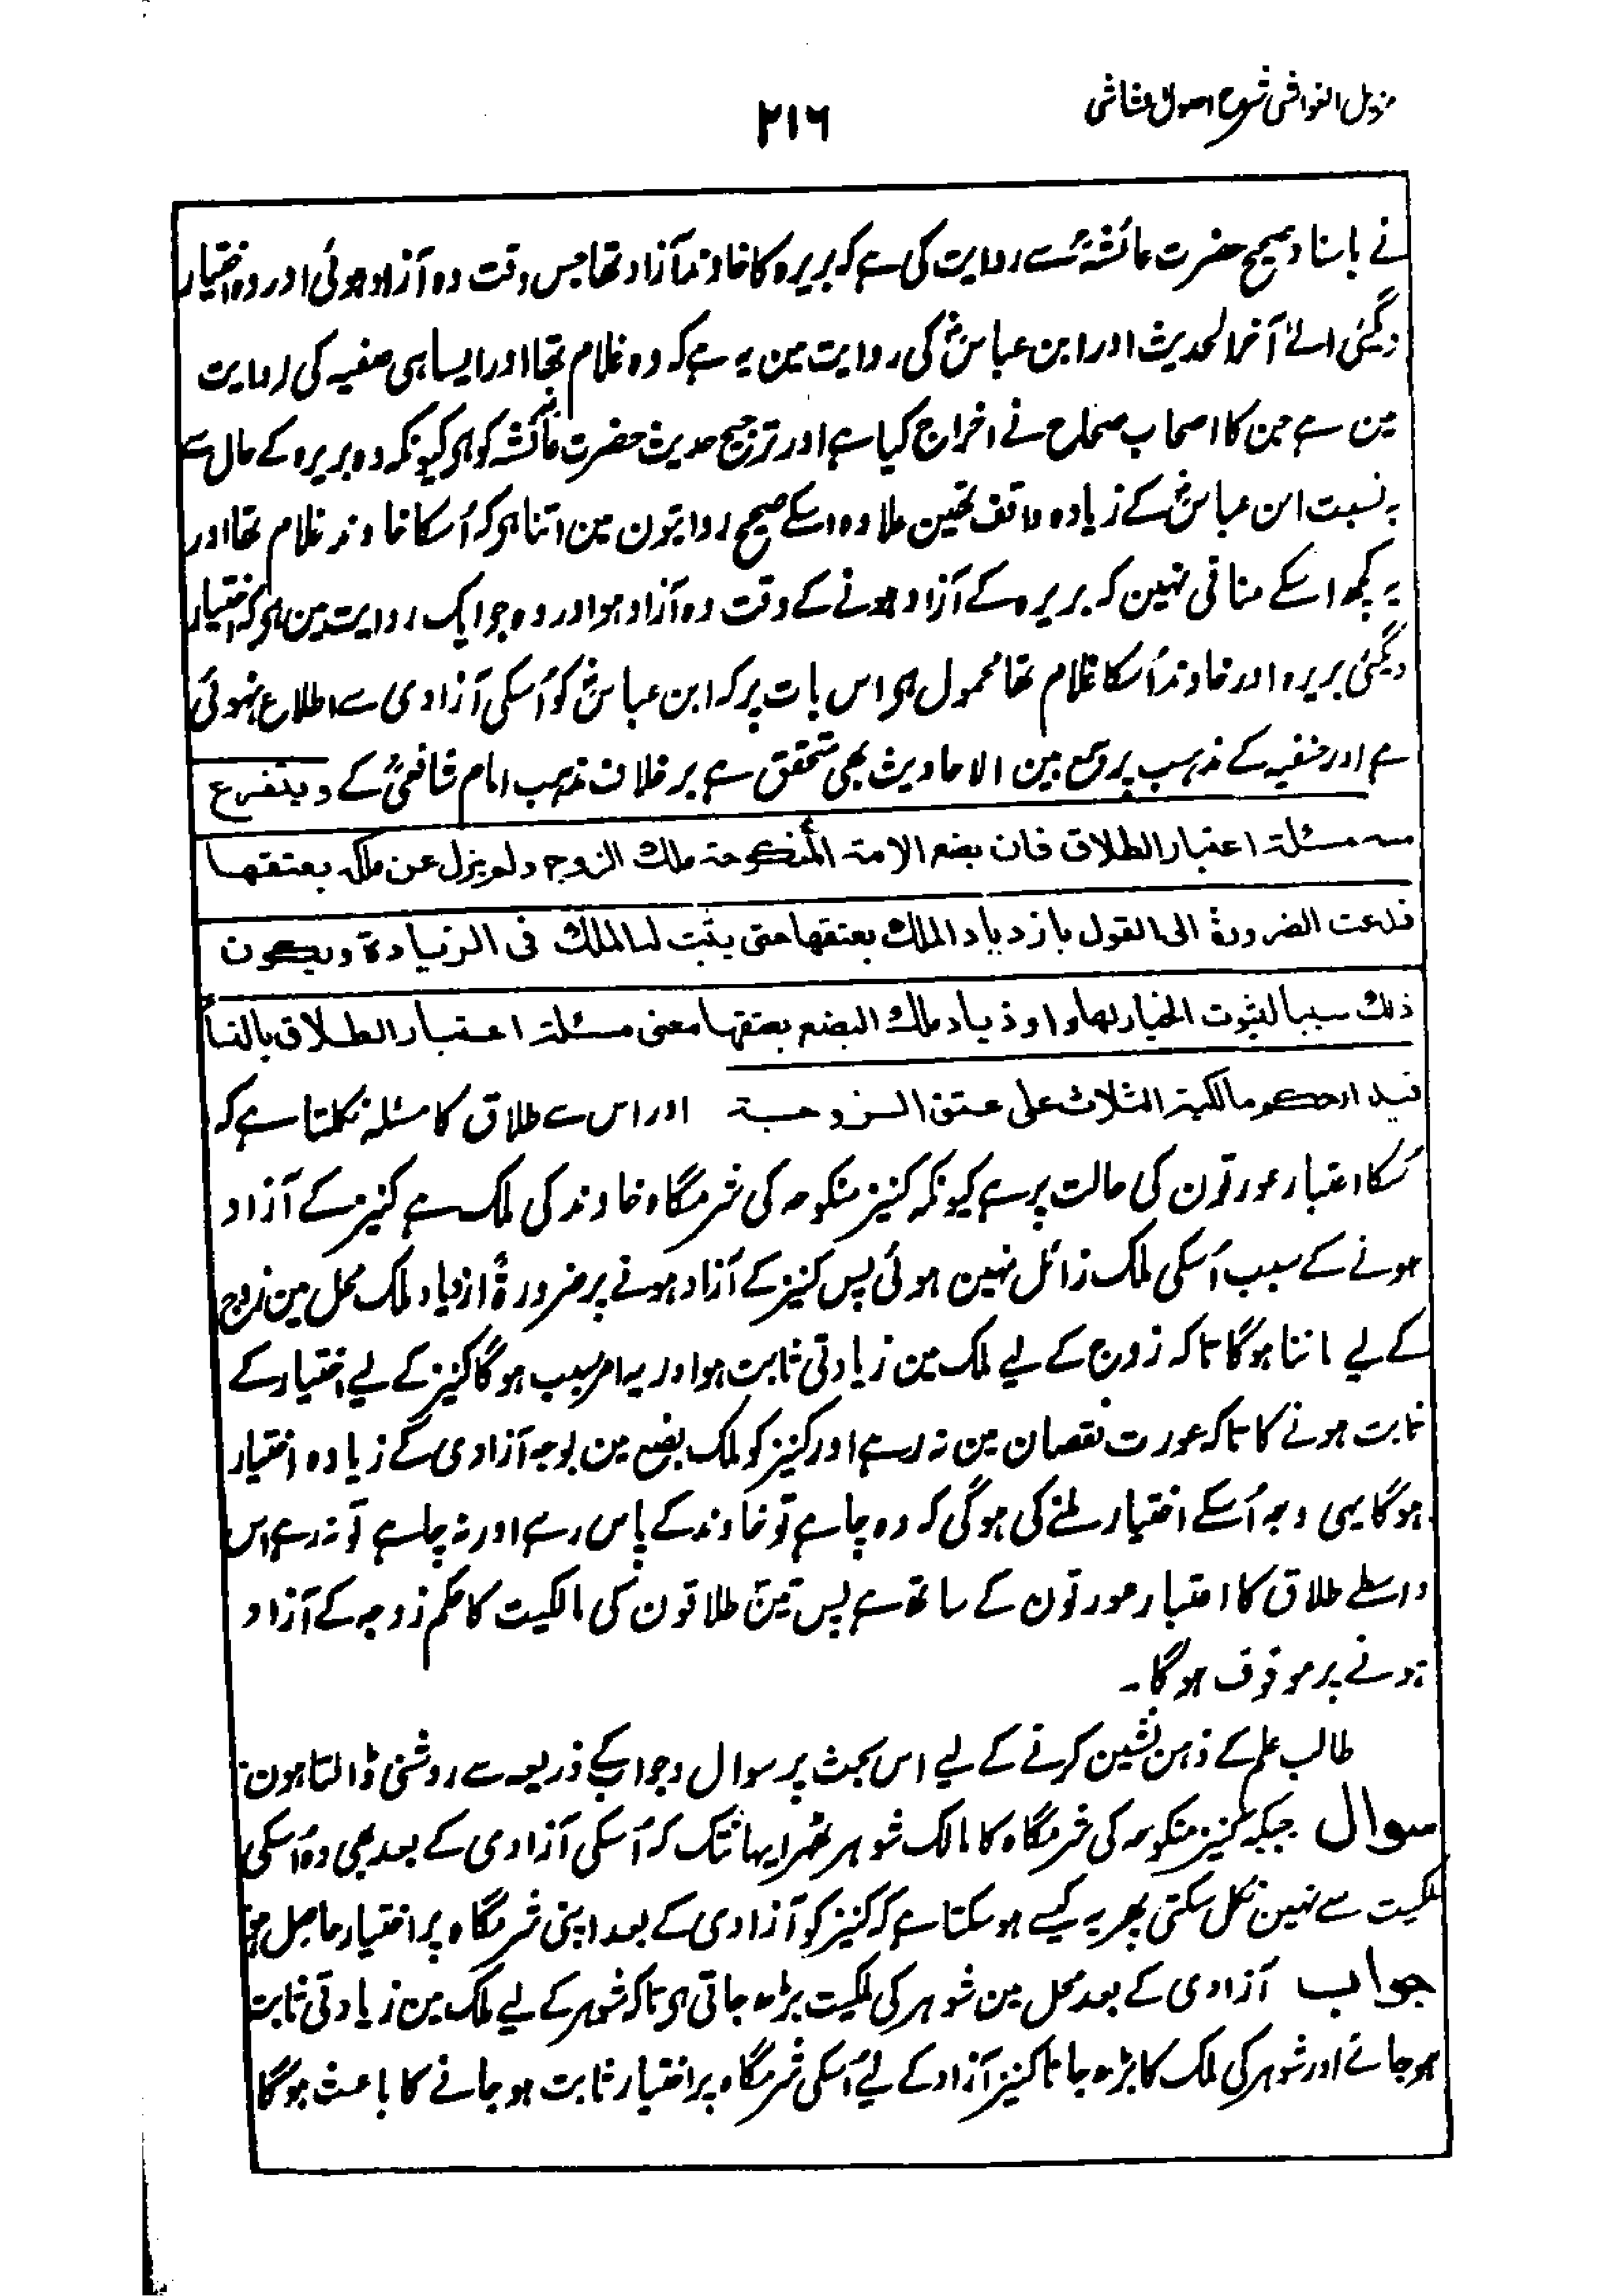 مزیل الغواشی شرح اصول الشاشی
۲۱۶
نے باسناد صحیح حضرت عائشہؓ سے روایت کی ہے کہ بریرہ کا خاوند آزاد تھا جس وقت وہ آزاد ہوئی اور وہ اختیار
دیگئی الےٰ آخر الحدیث اور ابن عباسؓ کی روایت مین یہ ہے کہ وہ غلام تھا اور ایسا ہی صفیہ کی روایت
مین ہے جن کا اصحاب صحاح نے اخراج کیا ہے اور ترجیح حدیث حضرت عائشہ کو ہی کیونکہ وہ بریرہ کے حال سے
بہ نسبت ابن عباسؓ کے زیادہ واقف تھین علاوہ اسکے صحیح روایتون مین اتنا ہی کہ اُسکا خاوند غلام تھا اور
یہ کچھ اسکے منافی نہین کہ بریرہ کے آزاد ہونے کے وقت وہ آزاد ہوا اور وہ جو ایک روایت مین ہی کہ اختیار
دیگئی بریرہ اور خاوند اُسکا غلام تھا محمول ہی اس بات پر کہ ابن عباسؓ کو اُسکی آزادی سے اطلاع نہوئی
ہے اور حنفیہ کے مذہب پر جمع بین الاحادیث بھی متحقق ہے برخلاف مذہب امام شافعیؒ کے ویتفرع
منہ مسئلۃ اعتبار الطلاق فان بضع الامۃ المنکوحۃ ملک الزوج ولم یزل عن ملکہ بعتقھا
فدعت الضرورۃ الی القول بازدیاد الملک بعتقھا حتی یثبت لہ الملک فی الزیادۃ ویکون
ذلک سببا لثبوت الخیار لھا وازدیاد ملک البضع بعتقھا معنی مسئلۃ اعتبار الطلاق بالنساء
فیدار حکم مالکیۃ الثلاث علی عتق الزوجۃ اور اس سے طلاق کا مسئلہ نکلتا ہے کہ
اُسکا اعتبار عورتون کی حالت پر ہے کیونکہ کنیز منکوحہ کی شرمگاہ خاوند کی ملک ہے کنیز کے آزاد
ہونے کے سبب اُسکی ملک زائل نہین ہوئی پس کنیز کے آزاد ہونے پر ضرورۃً ازدیاد ملک محل مین زوج
کے لیے ماننا ہوگا تاکہ زوج کے لیے ملک مین زیادتی ثابت ہو اور یہ امر سبب ہوگا کنیز کے لیے اختیار کے
ثابت ہونے کا تاکہ عورت نقصان مین نہ رہے اور کنیز کو ملک بضع مین بوجہ آزادی کے زیادہ اختیار
ہوگا یہی وجہ اُسکے اختیار ملنے کی ہوگی کہ وہ چاہے تو خاوند کے پاس رہے اور نہ چاہے تو نہ رہے اس
واسطے طلاق کا اعتبار عورتون کے ساتھ ہے پس تین طلاقون کی مالکیت کا حکم زوجہ کے آزاد
ہونے پر موقوف ہوگا۔
طالب علم کے ذہن نشین کرنے کے لیے اس بحث پر سوال وجواب کے ذریعہ سے روشنی ڈالتا ہون۔
سوال جبکہ کنیز منکوحہ کی شرمگاہ کا مالک شوہر ٹھہرا یہانتک کہ اُسکی آزادی کے بعد بھی وہ اُسکی
ملکیت سے نہین نکل سکتی پھر یہ کیسے ہوسکتا ہے کہ کنیز کو آزادی کے بعد اپنی شرمگاہ پر اختیار حاصل ہو
جواب آزادی کے بعد محل مین شوہر کی ملکیت بڑھ جاتی ہی تاکہ شوہر کے لیے ملک مین زیادتی ثابت
ہوجائے اور شوہر کی ملک کا بڑھ جانا کنیز آزاد کے لیے اُسکی شرمگاہ پر اختیار ثابت ہوجانے کا باعث ہوگا